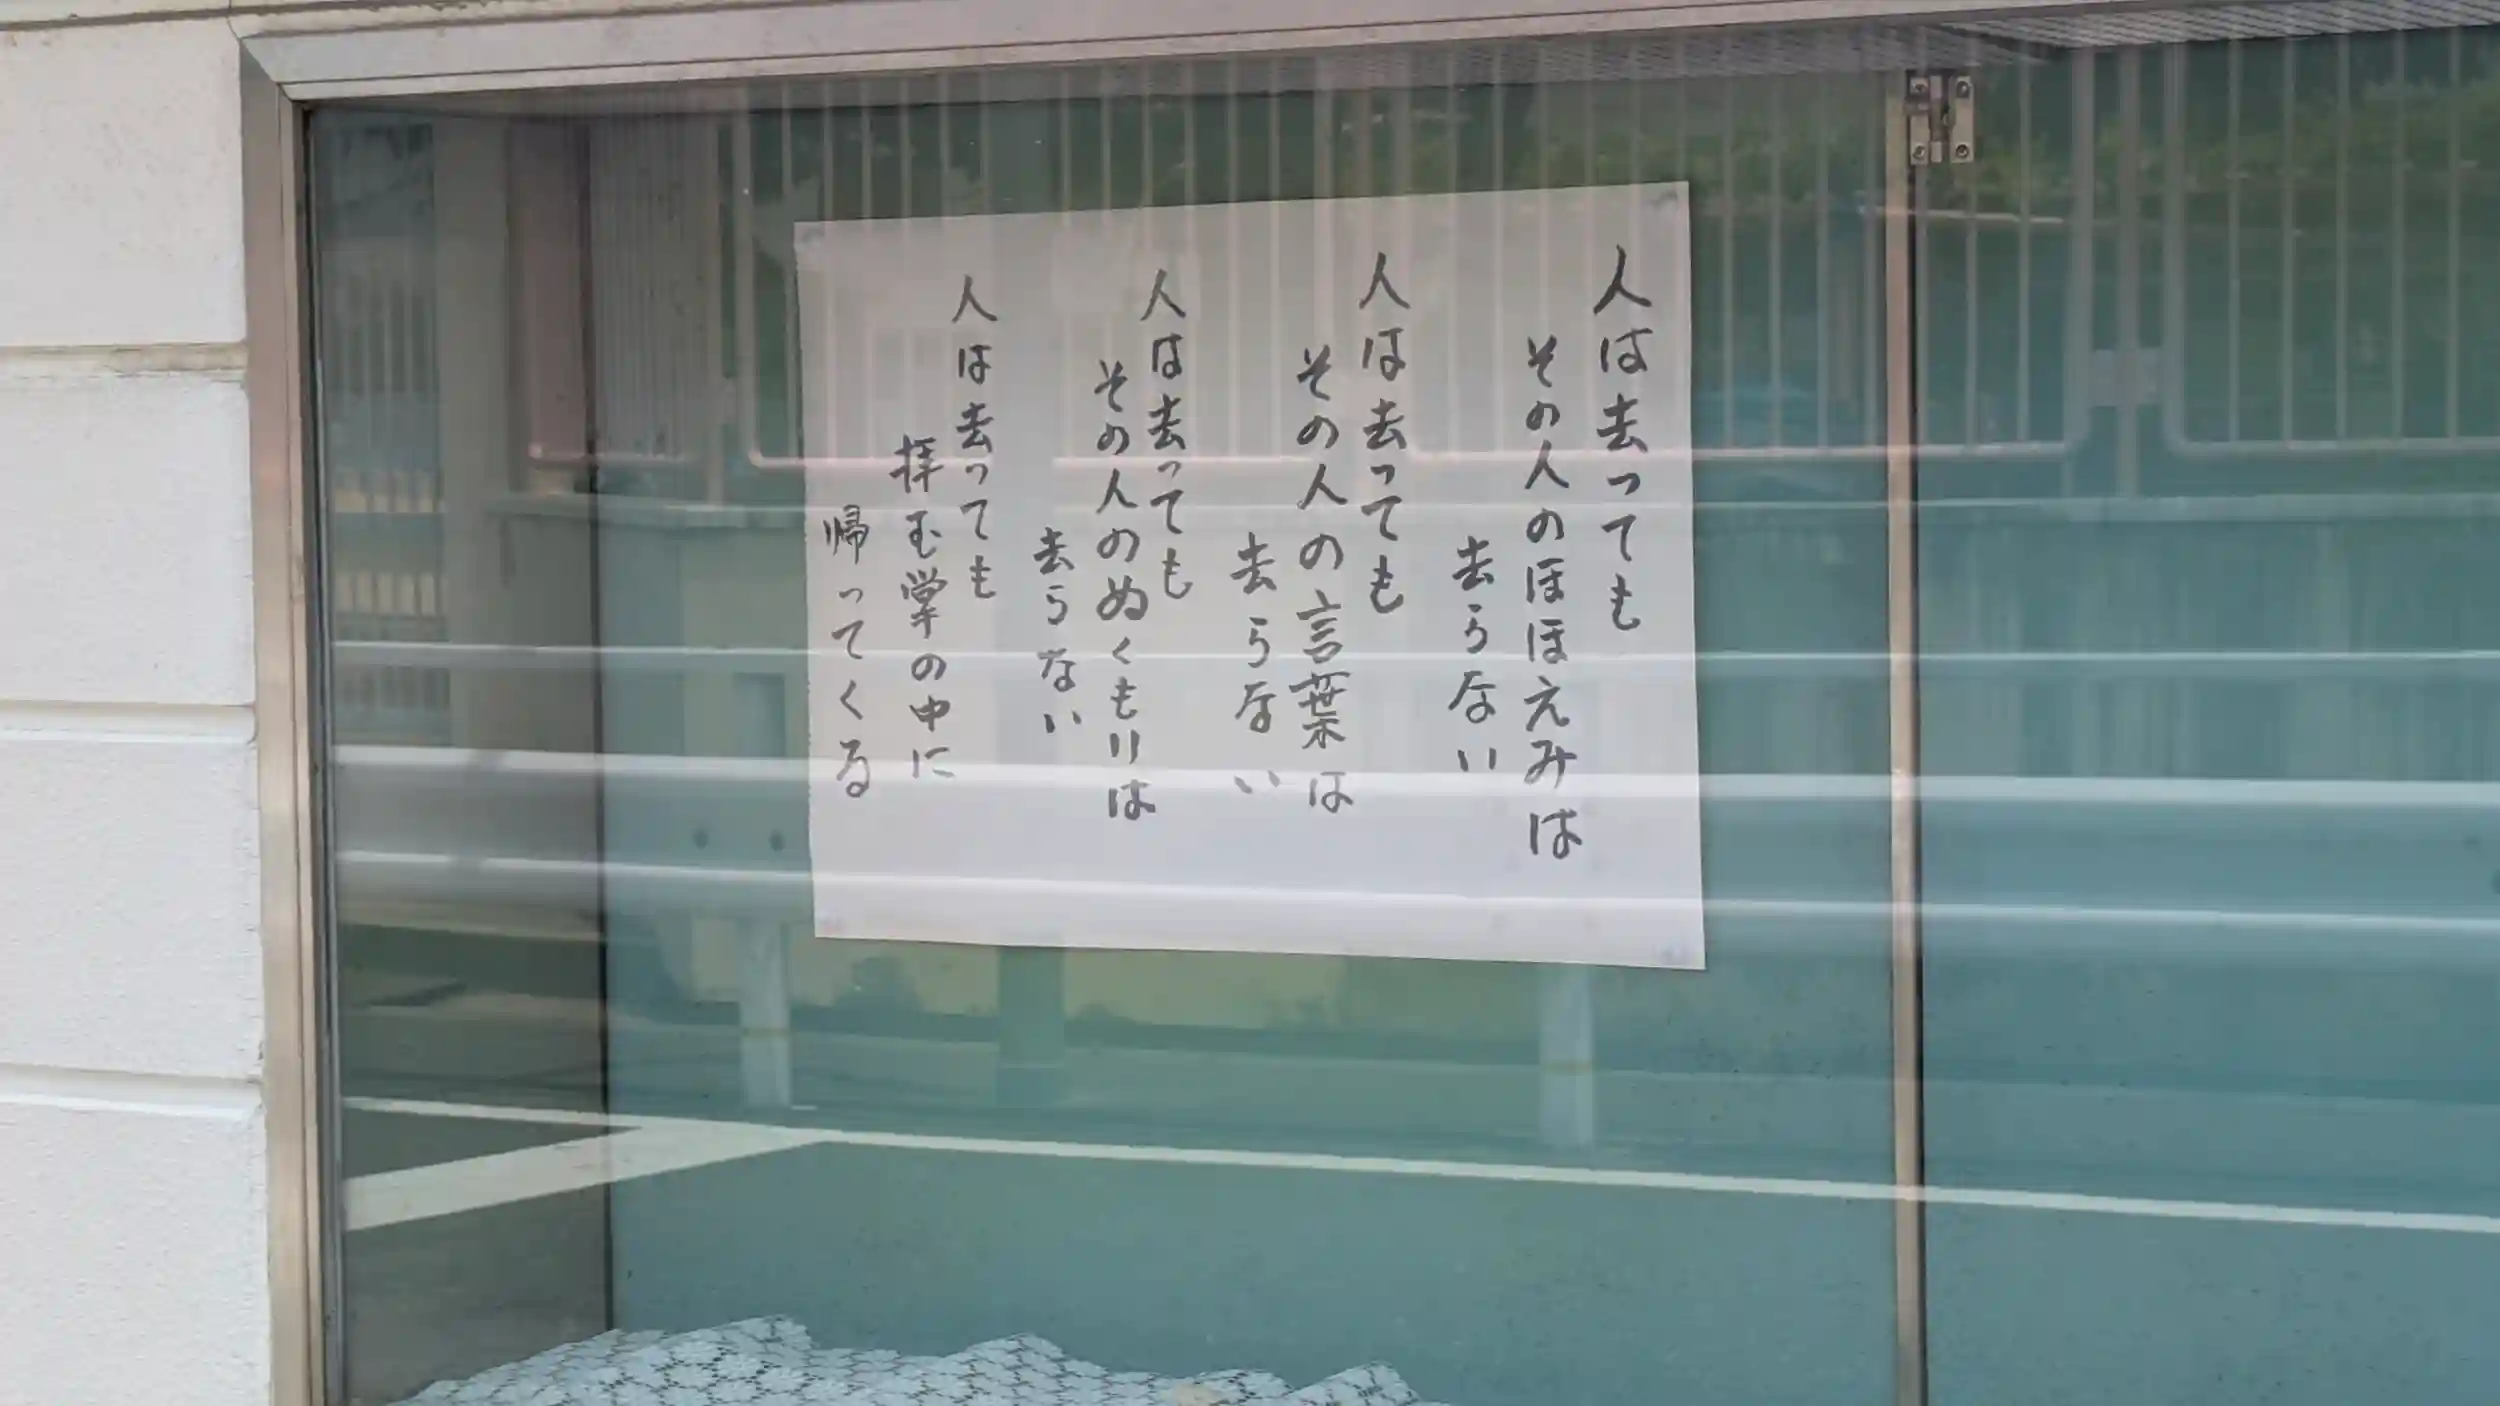 人は去っても
その人のほほえみは
去らない
人は去っても
その人の言葉は
去らない
人は去っても
その人のぬくもりは
去らない
人は去っても
拝む掌の中に
帰ってくる